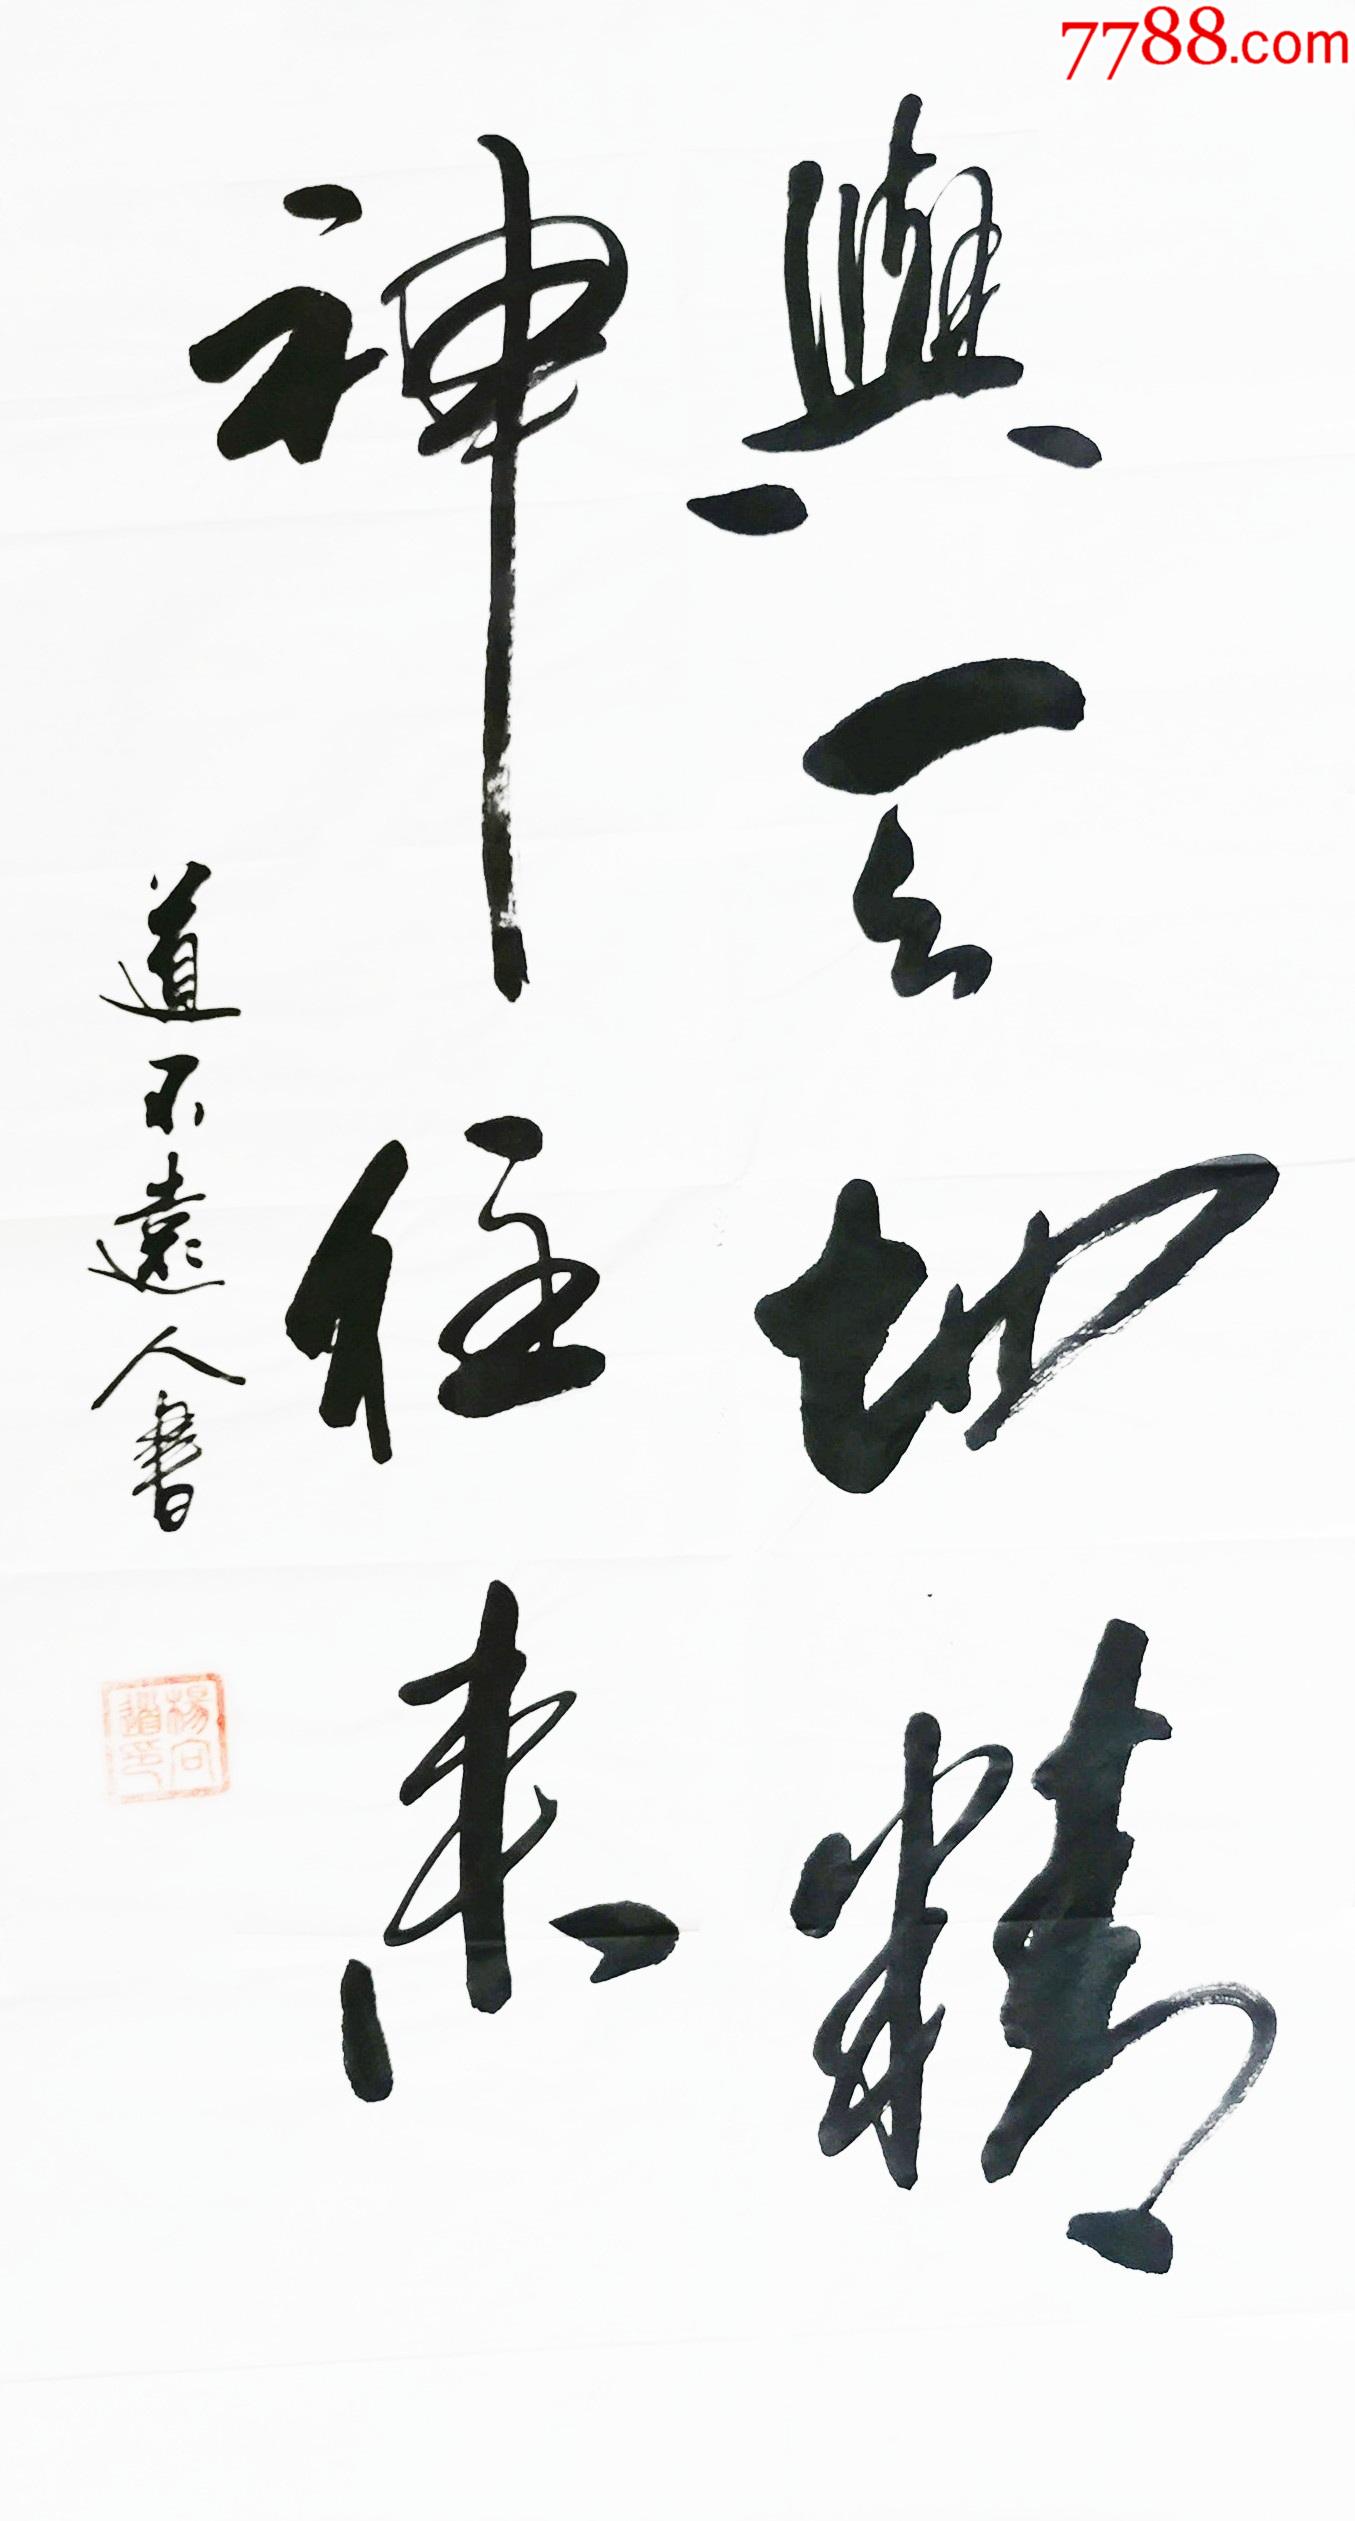 7788.com
與天地精
神往來
道不遠人書
楊向道印